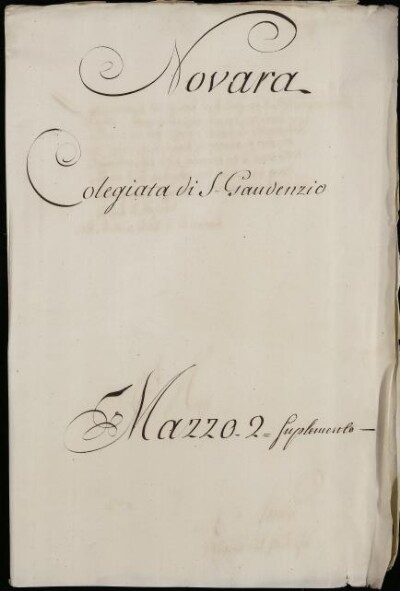 Novara
Colegiata di S. Gaudenzio
Mazzo. 2= Suplemento